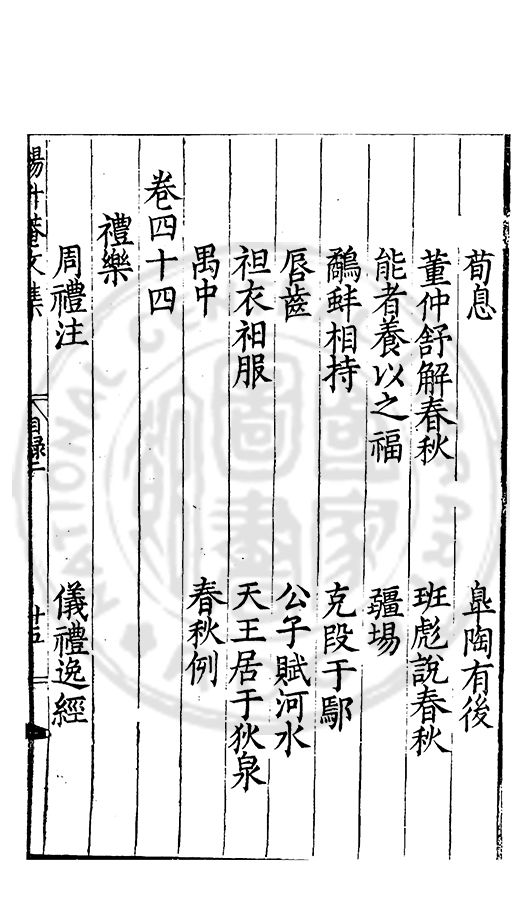 荀息 皐陶有後
董仲舒解春秋 班彪說春秋
能者養以之福 疆埸
鷸蚌相持 克段于鄢
唇齒 公子賦河水
袒衣衵服 天王居于狄泉
禺中 春秋例
卷四十四
禮樂
周禮注 儀禮逸經
目錄二
十五